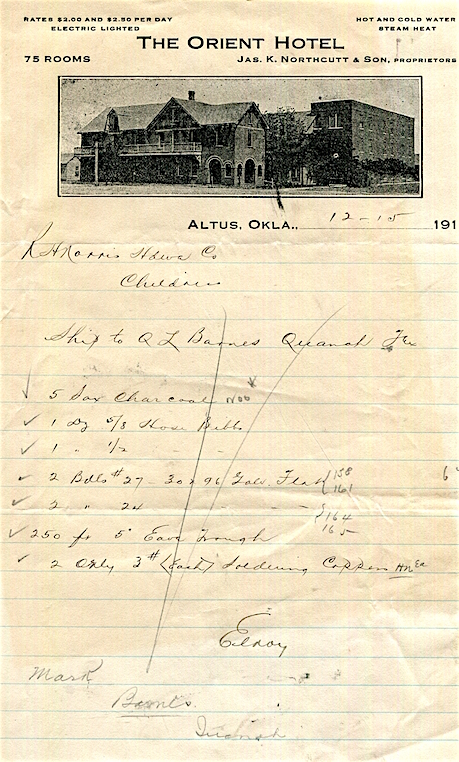 RATES $2.00 AND $2.50 PER DAY
ELECTRIC LIGHTED
HOT AND COLD WATER
STEAM HEAT
THE ORIENT HOTEL
75 ROOMS
JAS. K. NORTHCUTT & SON, PROPRIETORS
ALTUS, OKLA., 12-15 191
Morris Hdwe Co
Childress
Ship to Q L Barnes Quanah Tex
5 Sax Charcoal
1 Dz 5/8 Hose Bibbs
1 " 1/2 " "
2 Bdls #27 - 30 x 96 Galv. Flat 158
161
2 " 24 - - - 164
165
250 ft 5" Eave Trough
2 Only 3# (Each) Soldering Coppers
Elroy
Mark
Barnes
Quanah